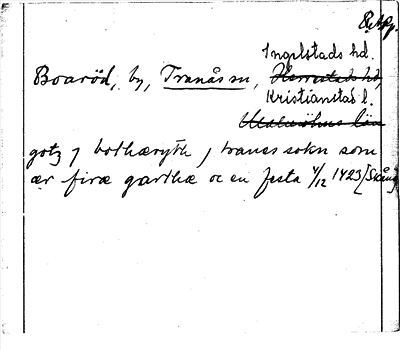 Ingelstads hd.
Boaröd, by, Tranås sn, Herrestads hd,
Kristianstad l.
Malmöhus län
gotz j bothæryth j tranes sokn som
ær firæ garthæ oc en festa 4/12 1423 [Skåne]